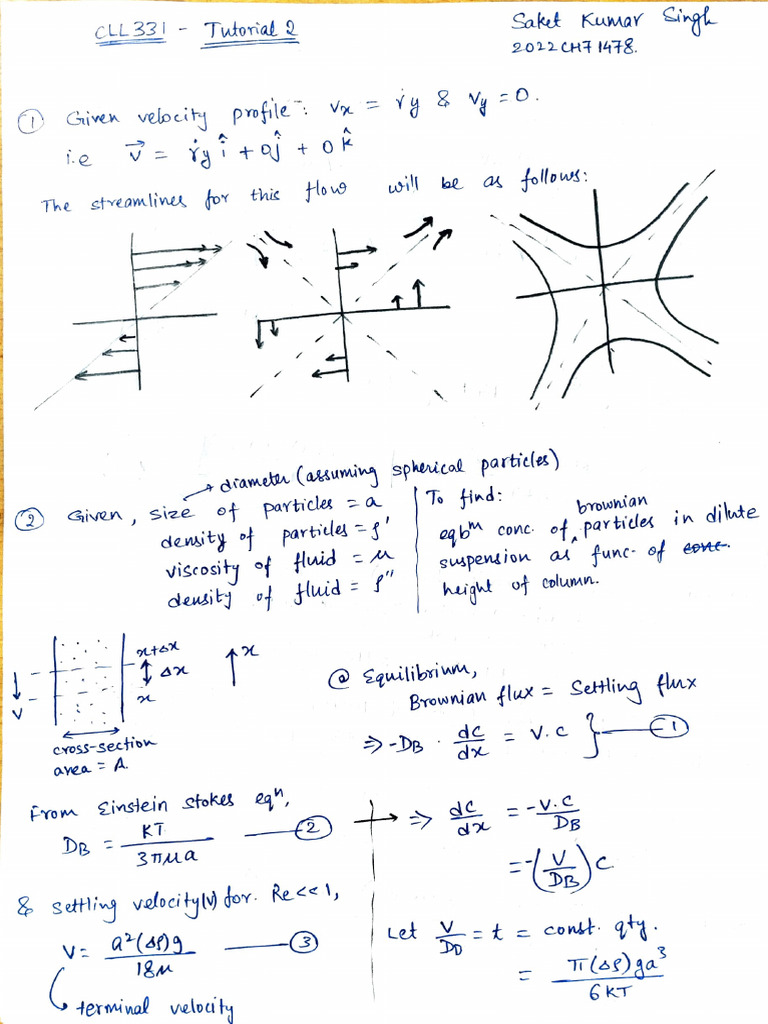 CLL331 - Tutorial 2
Saket Kumar Singh
2022CH71478.
① Given velocity profile: vx = γ̇y & vy = 0.
i.e v⃗ = γ̇y î + 0ĵ + 0 k̂
The streamlines for this flow will be as follows:
→ diameter (assuming spherical particles)
② Given, size of particles = a
density of particles = ρ'
viscosity of fluid = μ
density of fluid = ρ''
To find:
brownian
eqbᵐ conc. of ^ particles in dilute
suspension as func- of conc.
height of column.
x+Δx
Δx
x
x
V
cross-section
area = A.
@ Equilibrium,
Brownian flux = Settling flux
⇒ -D_B . dc/dx = V.C } —①
From Einstein Stokes eqⁿ,
D_B = KT / 3πμa —②
& settling velocity(v) for Re<<1,
V = a²(Δρ)g / 18μ —③
terminal velocity
→ ⇒ dc/dx = -V.C / D_B
= -(V/D_B) C
Let V/D_D = t = const. qty.
= π(Δρ)ga³ / 6KT